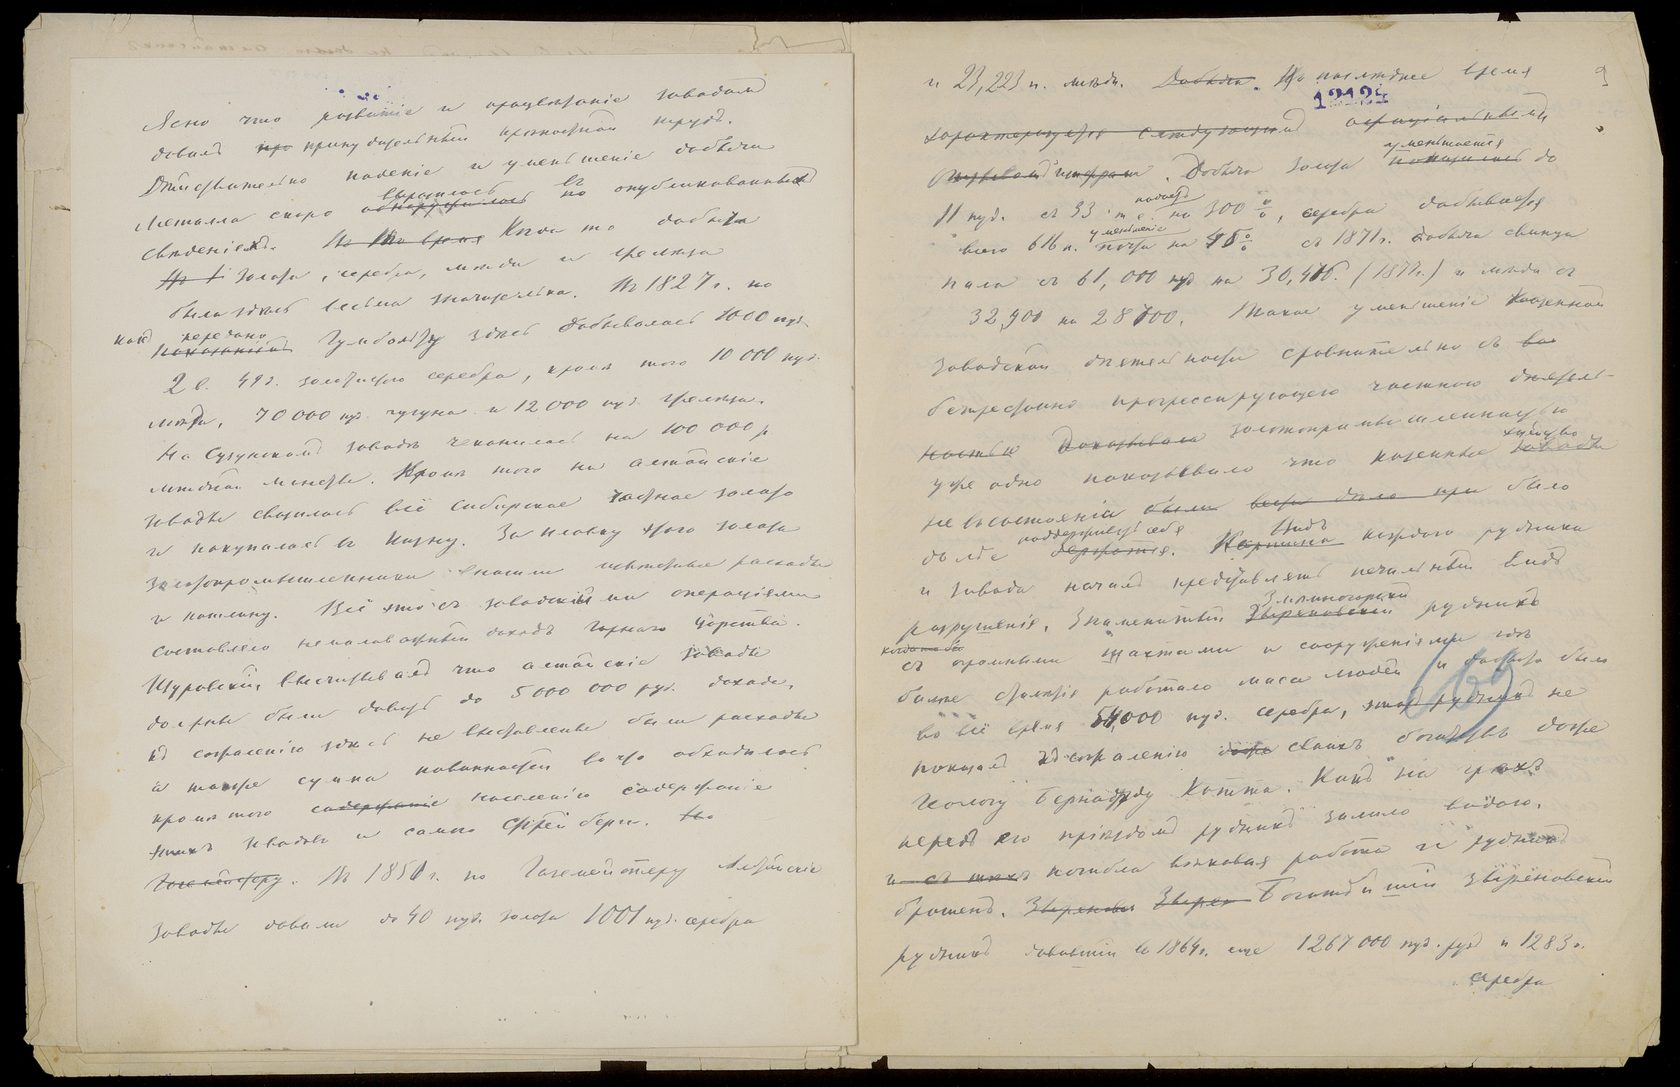 Ясно что развитіе и процвѣтаніе заводамъ
давалъ про принудительный крѣпостной трудъ.
Дѣйствительно паденіе и уменьшеніе добычи
металла скоро выразилось обнаружилось въ по опубликованныхъ
свѣденіяхъ. Въ то время Когда то добыча
золота, серебра, мѣди и желѣза
была здѣсь весьма значительна. Въ 1827 г. по
какъ передано показаній Гумбольту здѣсь добывалось 1000 пуд.
2 ф. 49 з. золотистого серебра, кромѣ того 10 000 пуд.
мѣди, 70 000 пуд. чугуна и 12 000 пуд. желѣза.
На Сузунскомъ заводѣ чеканилось на 100 000 р
мѣдной монеты. Кромѣ того на алтайскіе
заводы свозилось всё сибирское частное золото
и покупалось въ казну. За плавку этого золота
золотопромышленники вносили известные расходы
и пошлину. Всё это съ заводскими операціями
составляло немаловажный доходъ Горнаго Царства.
Щуровскій, высчитывалъ что алтайскіе заводы
должны были давать до 5 000 000 руб. дохода,
къ сожалению здѣсь не выставлены были расходы
а также сумма повинностей во что обходилось
кромѣ того содержаніе населенію содержаніе
этихъ заводовъ и самого
Гагемейстеру. Въ 1851 г. по Гагемейстеру Алтайскіе
Заводы давали до 40 пуд. золота 1001 пуд. серебра
и 23,223 п. мѣди. Добыча. Въ последнее время
12124
9
характеризуется слѣдующими официальными
цифрами. Добыча золота уменьшается понизилась до
11 пуд. съ 33 т.е. падаетъ на 300%, серебра добывается
всего 616 п. уменьшеніе почти на 45% съ 1871 г. добыча свинца
пала съ 61,000 пуд на 30,416. (1877 г.) и мѣди съ
32,900 на 28 700. Такое уменьшеніе казенной
заводской дѣятельности сравнительно съ
безпрестанно прогрессирующею частною дѣятель-
ностью Доказывала золотопромышленностью
уже одно показывало что казенные хозяйство заводы
не въ состояніи были было
долѣе поддерживать себя держатся. Картина Видъ каждого рудника
и завода началъ представлять печальный видъ
разрушенія. Знаменитый Змѣиногорскій Зыряновскій рудникъ
когда то съ огромными шахтами и сооруженіями гдѣ
болѣе столѣтія работало масса людей и добыто было
во всё время 54,000 пуд. серебра, этотъ рудникъ не
показалъ къ сожалению даже своихъ богатствъ даже
геологу Бернгарду Котта. Какъ на грѣхъ
передъ его пріѣздомъ рудникъ залило водою,
и съ тѣхъ погибла вѣковая работа и рудникъ
брошенъ. Зыряновск Зырян Богатѣйшій Зыряновскій
рудникъ дававшій въ 1864 г. еще 1267 000 пуд. руд и 1283 п.
серебра